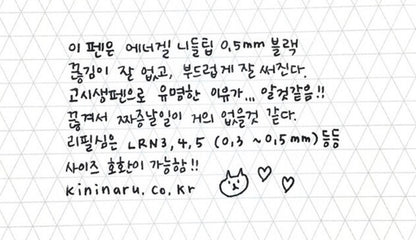 이 펜은 에너겔 니들팁 0.5mm 블랙
끊김이 잘 없고, 부드럽게 잘 써진다.
고시생펜으로 유명한 이유가... 알것같음!!
끊겨서 짜증날일이 거의 없을것 같다.
리필심은 LRN3,4,5 (0.3 ~0.5mm)등등
사이즈 호환이 가능함!!
kininaru.co.kr